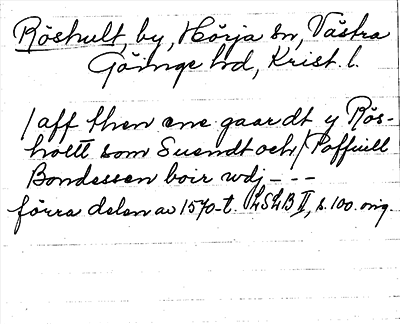 Röshult, by, Hörja sn, Västra
Göinge hd, Krist. l.
/ aff then ene gaardt y Rös-
holtt som Suendt och / Poffuill
Bondessen boir wdj - - -
förra delen av 1570-t. LSLB II, s. 100. orig.